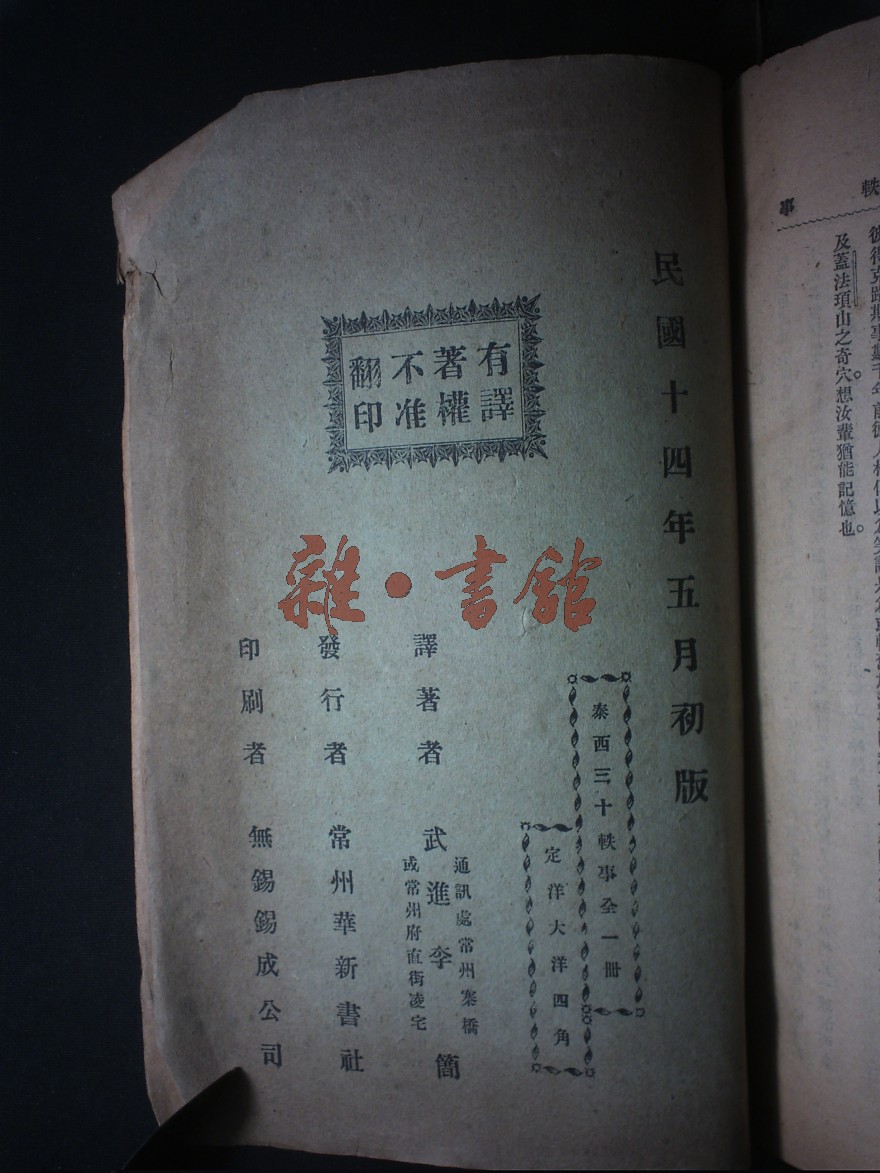 事
軼
及蓋法項山之奇穴。想汝輩猶能記憶也。
民國十四年五月初版
泰西三十軼事全一冊
定洋大洋四角
有譯
著權
不准
翻印
譯著者 武進李簡
通訊處常州寨橋
或常州府直街凌宅
發行者 常州華新書社
印刷者 無錫錫成公司
雜·書館